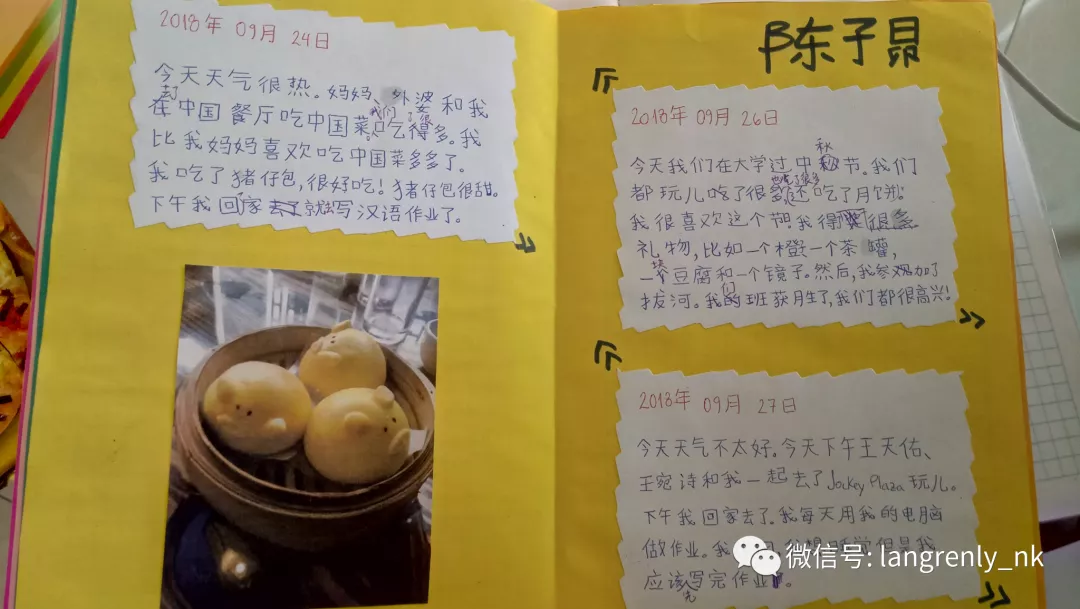 2018年 09月 24日
今天天气很热。妈妈、外波和我
在中国餐厅吃中国菜。我们吃得多。我
比我妈妈喜欢吃中国菜多多了。
我吃了猪仔包,很好吃!猪仔包很甜。
下午我回家去了就写汉语作业了。
陈子昂
2018年 09月 26日
今天我们在大学过中秋节。我们
都玩儿吃了很多还吃了月饼。
我很喜欢这个节!我得 很多
礼物,比如一个橙一个茶罐,
一块豆腐和一个镜子。然后,我参加了
拔河。我们的班获胜了,我们都很高兴!
2018年 09月 27日
今天天气不太好。今天下午王天佑、
王宛诗和我一起去了Jockey Plaza玩儿。
下午我回家去了。我每天用我的电脑
做作业。我 想睡觉但是我
应该先写完作业。
微信号: langrenly_nk